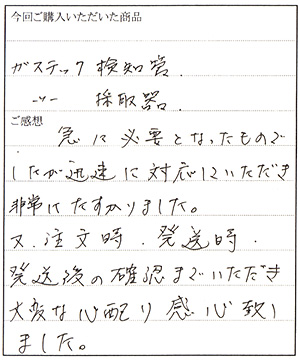 今回ご購入いただいた商品
ガステック検知管.
〃 採取器.
ご感想
急に必要となったもので
したが迅速に対応していただき
非常にたすかりました。
又.注文時.発送時.
発送後の確認までいただき
大変な心配り感心致し
ました。